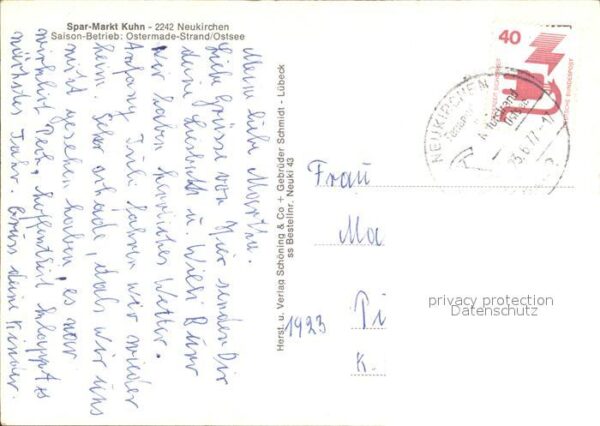 Spar-Markt Kuhn - 2242 Neukirchen
Saison-Betrieb: Ostermade-Strand/Ostsee
Meine liebe Martha.
Liebe Grüsse von hier senden Dir
deine Liesbeth u. Willi
wir haben herrliches Wetter.
Anfang Juli fahren wir wieder
heim. Sehr schade, daß wir uns
nicht gesehen haben, es war
wirklich Pech, hoffentlich klappt es
nächstes Jahr. Grüß deine Kinder.
Herst. u. Verlag Schöning & Co + Gebrüder Schmidt - Lübeck
ss Bestellnr. Neuki 43
40
DEUTSCHE BUNDESPOST
NEUKIRCHEN
Frau
Ma
1923
Pi
K.
privacy protection
Datenschutz